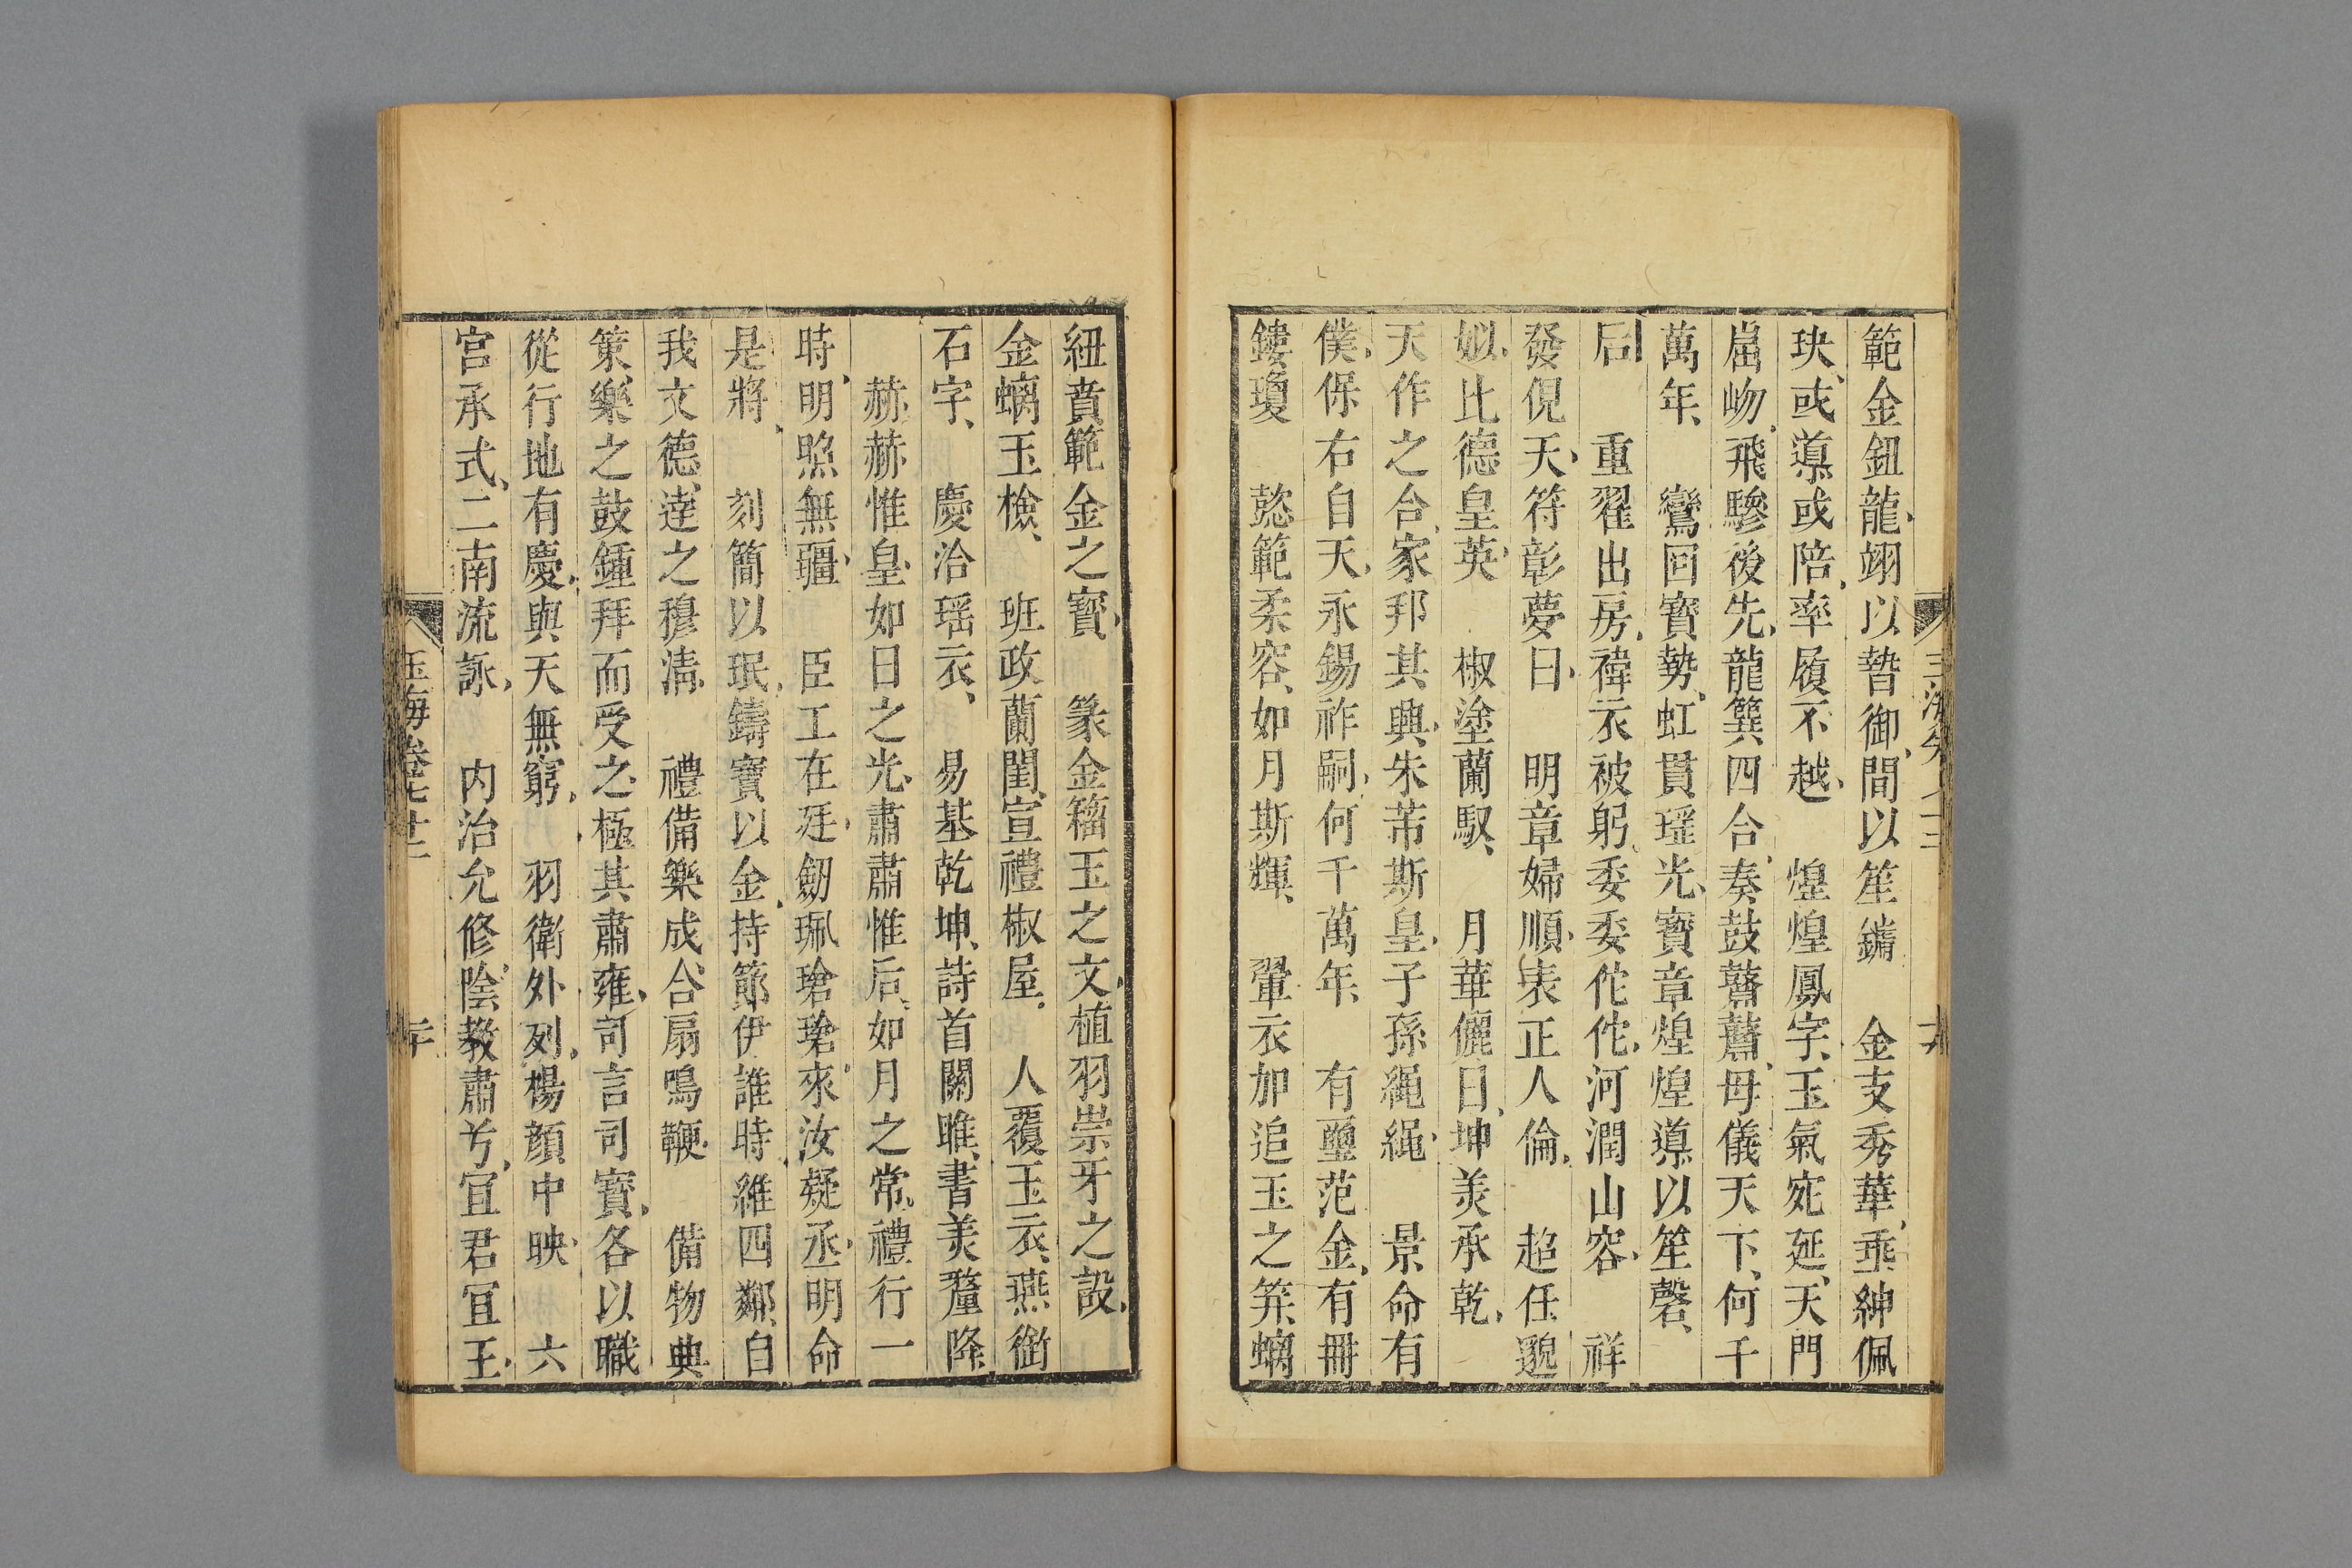 範金鈕龍、翊以贄御、間以笙鏞　金支秀華、垂紳佩
玦、或導或陪、率履不越、　煌煌鳳字、玉氣宛延、天門
崫岉、飛驂後先、龍簨四合、奏鼓鼛鼛、母儀天下、何千
萬年、　鸞回寶勢、虹貫瑶光、寶章煌煌、導以笙磬、
后　重翟出房、褘衣被躬、委委佗佗、河潤山容、　祥
發俔天、符彰夢日、　明章婦順、表正人倫、　超任邈
姒、比德皇英、　椒塗蘭馭、　月華儷日、坤美承乾、
天作之合、家邦其興、朱芾斯皇、子孫繩繩、　景命有
僕、保右自天、永錫祚嗣、何千萬年、　有璽范金、有冊
鏤瓊　懿範柔容、如月斯輝、　翬衣加追玉之筓、螭
紐賁範金之寳、　篆金籕玉之文、植羽崇牙之設、
金螭玉檢、　班政蘭閨、宣禮椒屋、　人覆玉衣、燕銜
石字、　慶洽瑶衣、　易基乾坤、詩首關雎、書美釐降、
　赫赫惟皇、如日之光、肅肅惟后、如月之常、禮行一
時、明照無疆、　臣工在廷、劒珮瑲瑲、來汝疑丞、明命
是將、　刻簡以珉、鑄寶以金、持節伊誰、時維四鄰、自
我文德、達之穆清、　禮備樂成、合扇鳴鞭、　備物典
策、樂之鼓鍾、拜而受之、極其肅雍、司言司寶、各以職
從、行地有慶、與天無窮、　羽衛外列、楊顔中映、　六
宫承式、二南流詠、　内治允修、陰教肅兮、宜君宜王、
玉海卷七十二
二十